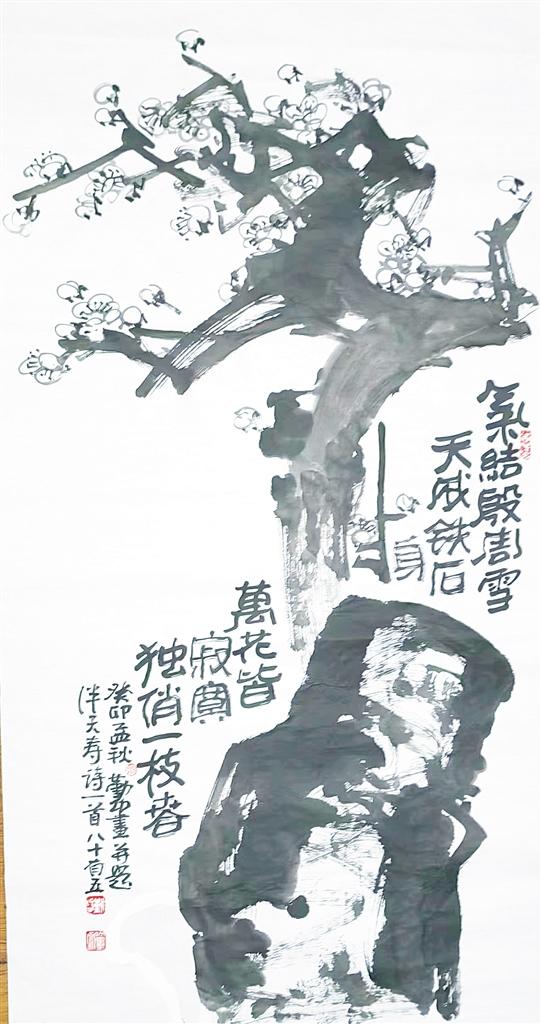 氣結殷周雪
天成铁石
身
萬花皆
寂寞
独俏一枝春
癸卯孟秋勤畫并题
潘天寿诗一首八十有五